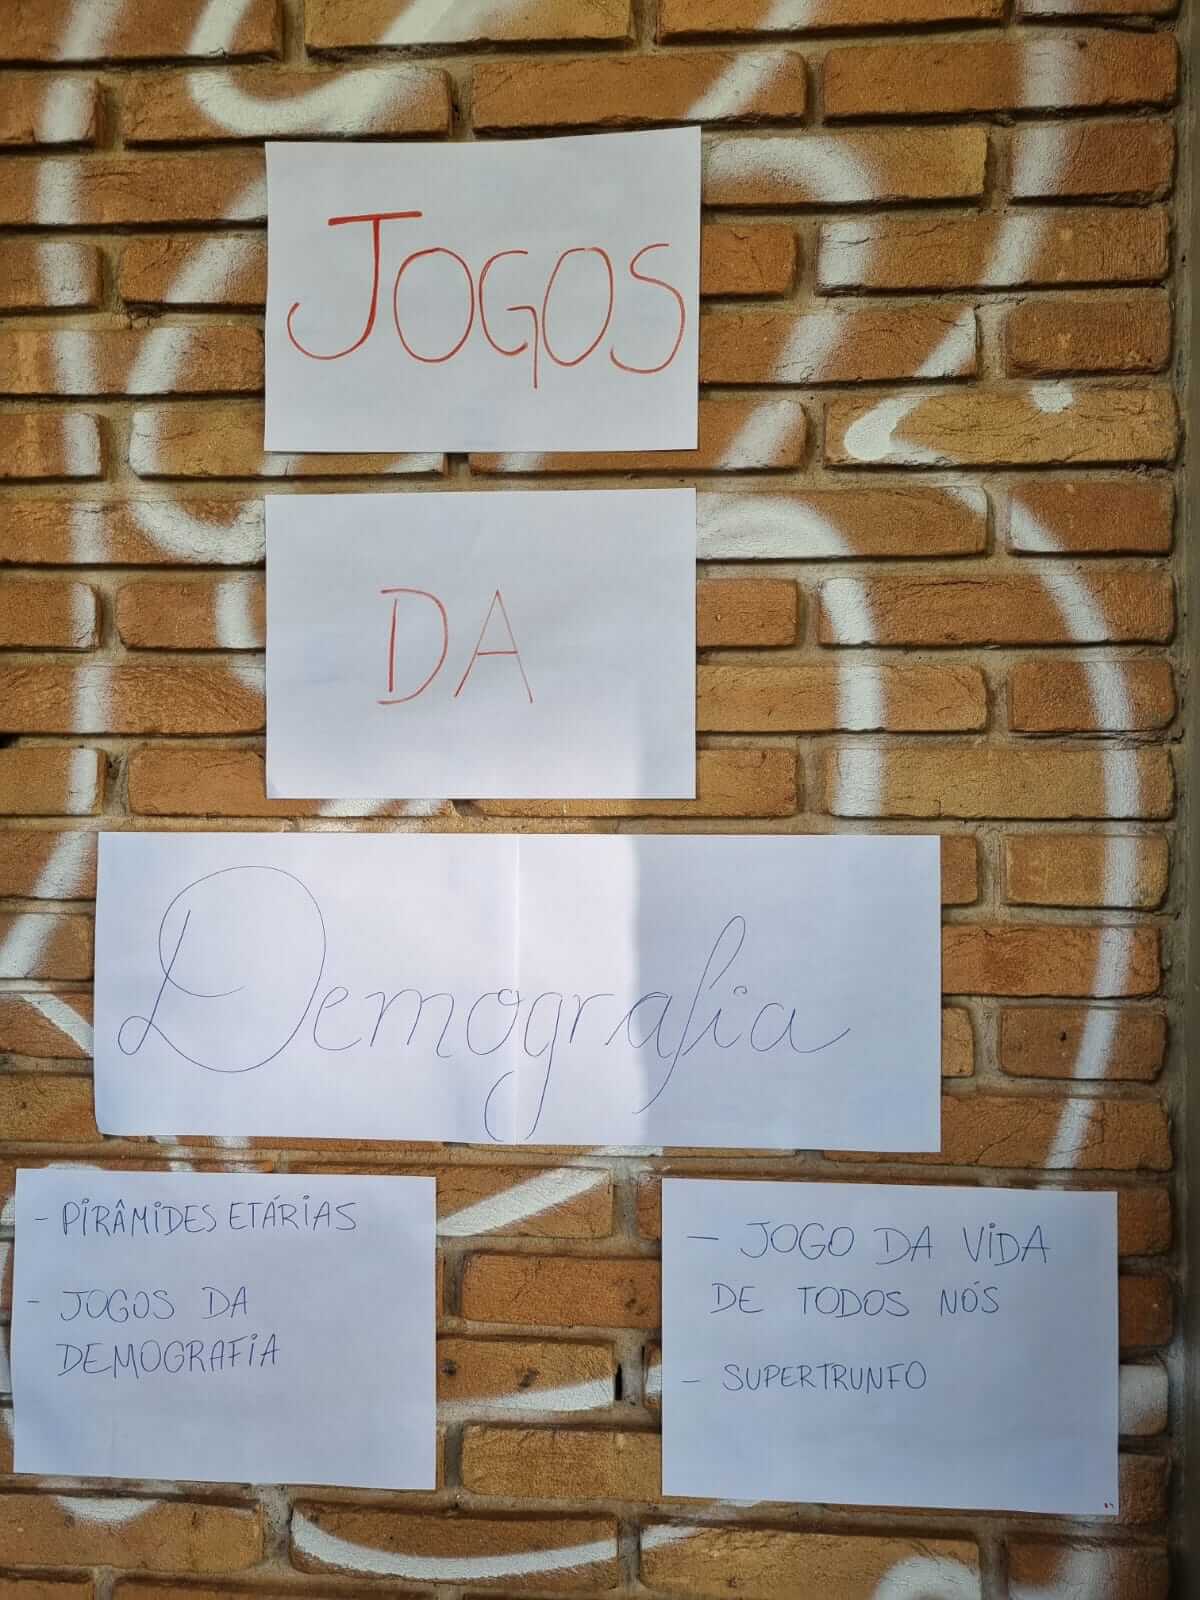 JOGOS
DA
Demografia
- PIRÂMIDES ETÁRIAS
- JOGOS DA
DEMOGRAFIA
- JOGO DA VIDA
DE TODOS NÓS
- SUPERTRUNFO